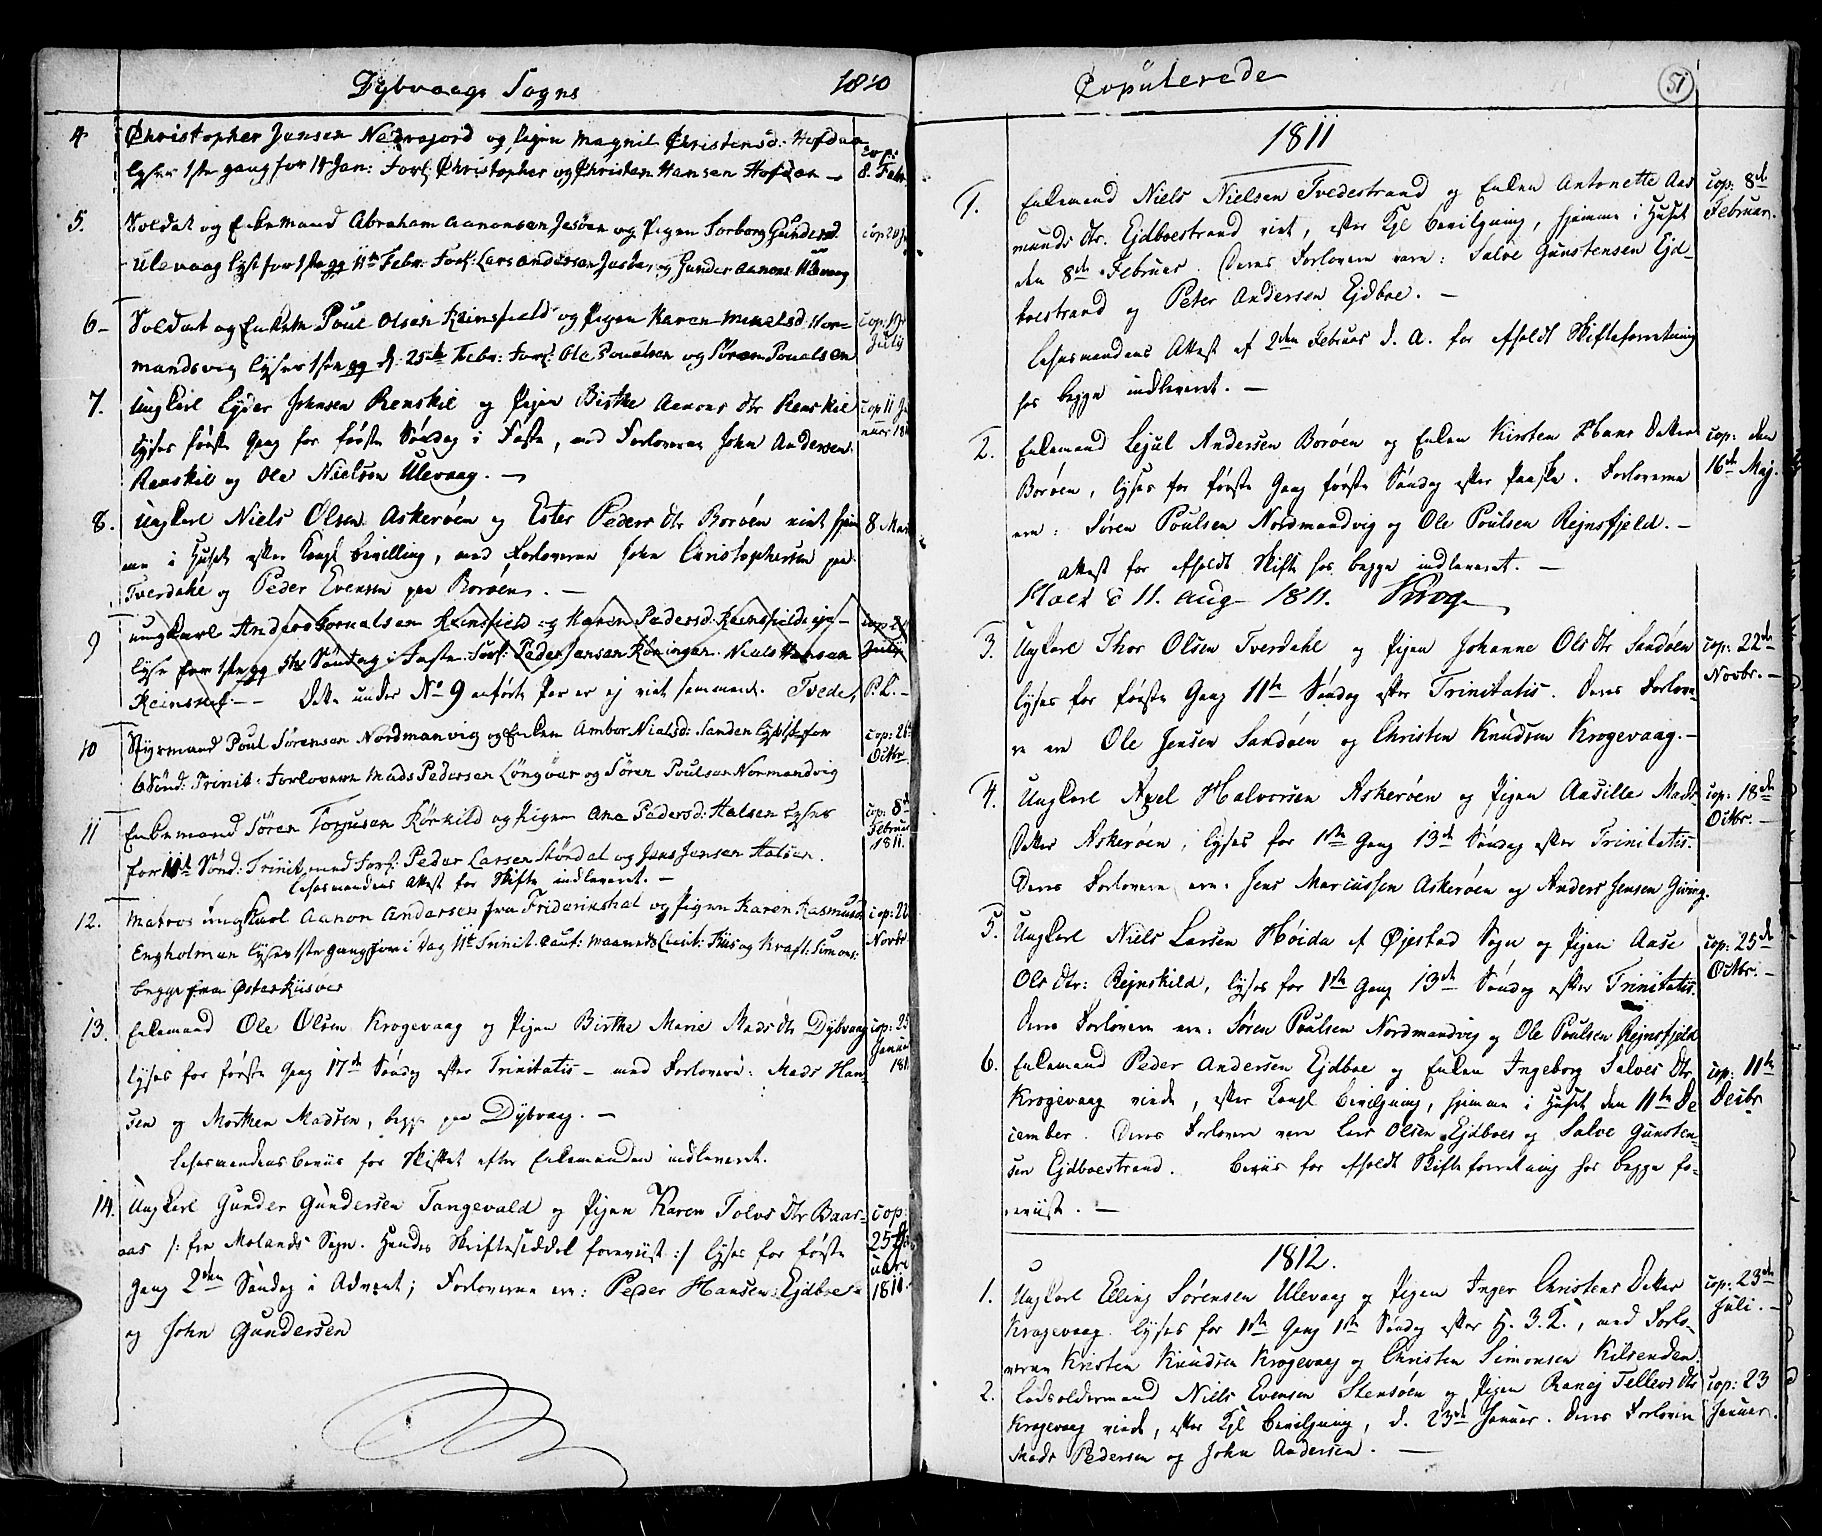 Dybvaags Sogns 1810
4 Christopher Jensen Nedrejord og Pigen Magnil Christensd: Hofdan cop:
lyses 1ste gang for 14 Jan: Forl: Christopher og Christen Hansen Hofdan — 8. Febr
5. Soldat og Enkemand Abraham Aanonsen Jesøen og Pigen Torborg Gundersd. cop 20
Ulevaag lyst for 1ste gg 11te Febr: Forl: Lars Andersen og Gunder Aanons Ulevaag
6 – Soldat og Enkem Poul Olsen Reinsfield og Pigen Karen Nielsd: Nor- cop: 19
mandsvig lyses 1ste gg d: 25de Febr: Forl: Ole Pouelsen og Søren Pouelsen July
7. Ungkarl Eyder Johnsen Renskil og Pigen Birthe Aanons Dtr Renskil cop 11 Ja
lyses første Gang for første Søndag i Faste, med Forloverne John Andersen nuar
Renskil og Ole Nielsen Ulevaag. —
8. Ungkarl Niels Olsen Askerøen og Ester Peders Dtr Borøen viet hjem 8 Mar
me i Huset efter Kongl Bevilling, med Forloverne John Christophersen paa
Tverdahl og Peder Evensen paa Borøen. —
9 Ungkarl Anders Reinsfield og Karen Pedersd: Reinsfield cop
lyse for 1ste gg Søndag i Faste: Forl: Peder Jensen Niels Hansen July
—— Dette under No 9 anførte Par er ej viet sammen. Tvede, P.L. —
10 Styrmand Poul Sørensen Nordmanvig og Enken Ambor Nielsd: Sanden lyst 1ste for cop: 21
6 Sønd: Trinit: Forlovere Mads Pedersen Longøen og Søren Poulsen Normandvig Octbr
11 Enkemand Søren Torjusen Rørkild og Pigen Ane Pedersd: Halsen lyses cop: 8de
for 11te Sønd: Trinit, med Forl: Peder Larsen Støndal og Jens Jensen Halsen. Februar 1811.
Lehnsmandens Attest for Skifte indleveret. —
12. Matros ungkarl Aanon Andersen fra Friderikshal og Pigen Karen Rasmusd cop: 22
Engholmen lyses 1ste gang for i Dag 11te Trinit. caut: og Kraft: Simons: Novbr
begge fra Østerrüsøer
13. Enkemand Ole Olsen Krogevaag og Pigen Birthe Marie Mads Dtr Dybvaag cop: 25
lyses for første Gang 17de Søndag efter Trinitatis – med Forlovere: Mads Han- Januar
sen og Morthen Madsen, begge paa Dybvaag. — 181
Lehnsmandens Beviis for Skiftet efter Enkemanden indleveret.
14. Ungkarl Gunder Gundersen Tangevald og Pigen Karen Tolvs Dtr Baas- cop:
aas /: fra Molands Sogn. Hendes Skriftesiddel foreviist :/ lyses for første 25
Gang 2den Søndag i Advent; Forloverne ere: Peder Hansen Ejdboe 181
og John Gundersen
Copulerede 51
1811
1. Enkemand Niels Nielsen Tvedestrand og Enken Antonette Aas cop: 8de
munds Dtr. Ejdboestrand viet, efter Kgl Bevilgning, hjemme i Huset Februar.
den 8de Februar. Deres Forlovere vare: Salve Gunstensen Ejd-
boestrand og Peter Andersen Ejdboe. —
Lehnsmandens Attest af 2den Februar d. A. for afholdt Skifteforretning
hos begge indleveret. —
2. Enkemand Lejul Andersen Borøen og Enken Kirsten Hans Datter cop: den
Borøen, lyses for første Gang første Søndag efter Paaske. Forloverne 16de Maj.
ere: Søren Poulsen Nordmandvig og Ole Poulsen Rejnsfjeld. —
Attest for afholdt Skifte hos begge indleveret. —
Holt d 11. Aug 1811. Krog
3. Ungkarl Thor Olsen Tverdahl og Pigen Johanne Ols Dtr Sandøen cop: 22de
lyses for første Gang 11te Søndag efter Trinitatis. Deres Forlove- Novbr. —
re ere Ole Jensen Sandøen og Christen Knudsen Krogevaag. —
4. Ungkarl Axel Halvorsen Askerøen og Pigen Aasille Mads cop: 18de
Datter Askerøen, lyses for 1ste Gang 13de Søndag efter Trinitatis. Octbr. —
Deres Forlovere ere: Jens Marcussen Askerøen og Anders Jensen Giving.
5. Ungkarl Niels Larsen Høida af Øjestad Sogn og Pigen Aase cop: 25de
Ols Dtr: Rejnskild, lyses for 1ste Gang 13de Søndag efter Trinitatis. Octbr. —
Deres Forlovere ere: Søren Poulsen Nordmandvig og Ole Poulsen Rejnsfjeld
6. Enkemand Peder Andersen Ejdboe og Enken Ingeborg Salves Dtr cop: 11te
Krogevaag viede, efter Kongl Bevilgning, hjemme i Huset den 11te De Decbr
cember. Deres Forlovere vare Lars Olsen Ejdboe og Salve Gunsten-
sen Ejdboestrand. Beviis for afholdt Skifteforretning hos begge fo-
reviist. —
1812.
1. Ungkarl Elling Sørensen Ulevaag og Pigen Inger Christens Datter cop: 23de
Krogevaag. lyses for 1ste Gang 1ste Søndag efter H. 3. K., med Forlo- Juli. —
verne Kristen Knudsen Krogevaag og Christen Simonsen Kilsenden.
2. Lodsoldermand Niels Evensen Stensøen og Pigen Ranej Tellevs Dtr cop: 23
Krogevaag viede, efter Kgl Bevilgning, d. 23de Januar. Deres Forlovere Januar.
Mads Pedersen og John Andersen. —